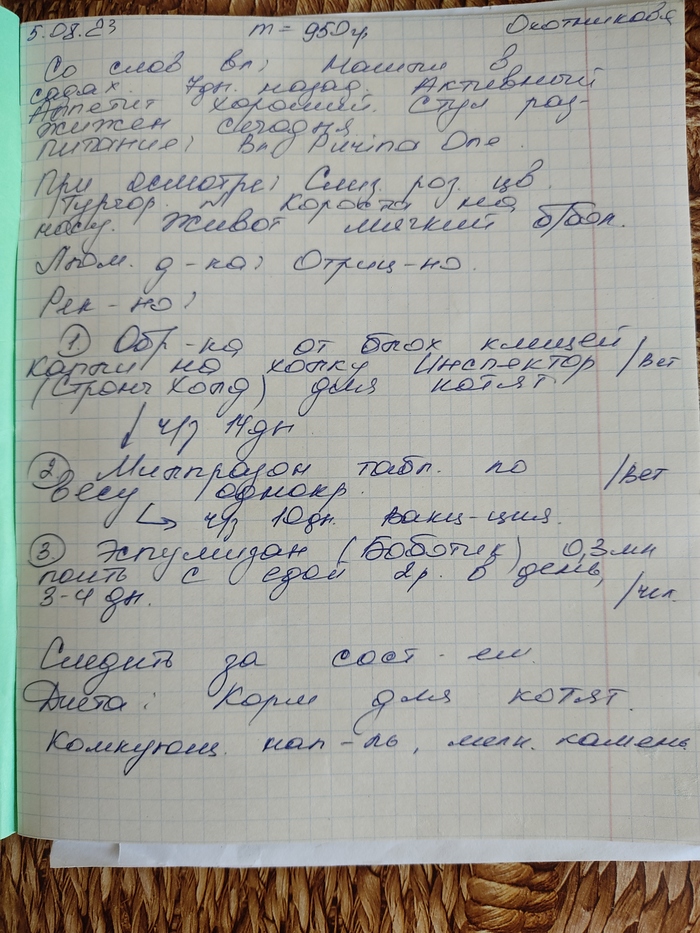 5.08.23 m = 950гр Охотникова
Со слов вл: Нашли в
садах 7дн. назад. Активный
Аппетит хороший. Стул раз-
жижен сегодня.
питание: Вл Purina One.
При осмотре: Слиз. роз. цв.
Тургор N Короста на
носу. Живот мягкий б/бол.
Люм. д-ка: Отриц-но.
Рек-но:
① Обр-ка от блох клещей
Капли на холку Инспектор /Вет
(Стронг Холд) для котят
↓ ч/з 14дн.
② Милпразон табл. по /Вет
весу /однокр.
↳ ч/з 10дн. вакц-ция.
③ Эспумизан (Боботик) 0,3мл
поить с едой 2р. в день,
3-4 дн. /чел.
Следить за сост-ем.
Диета: Корм для котят.
Комкующ. нап-ль, мелк. камень